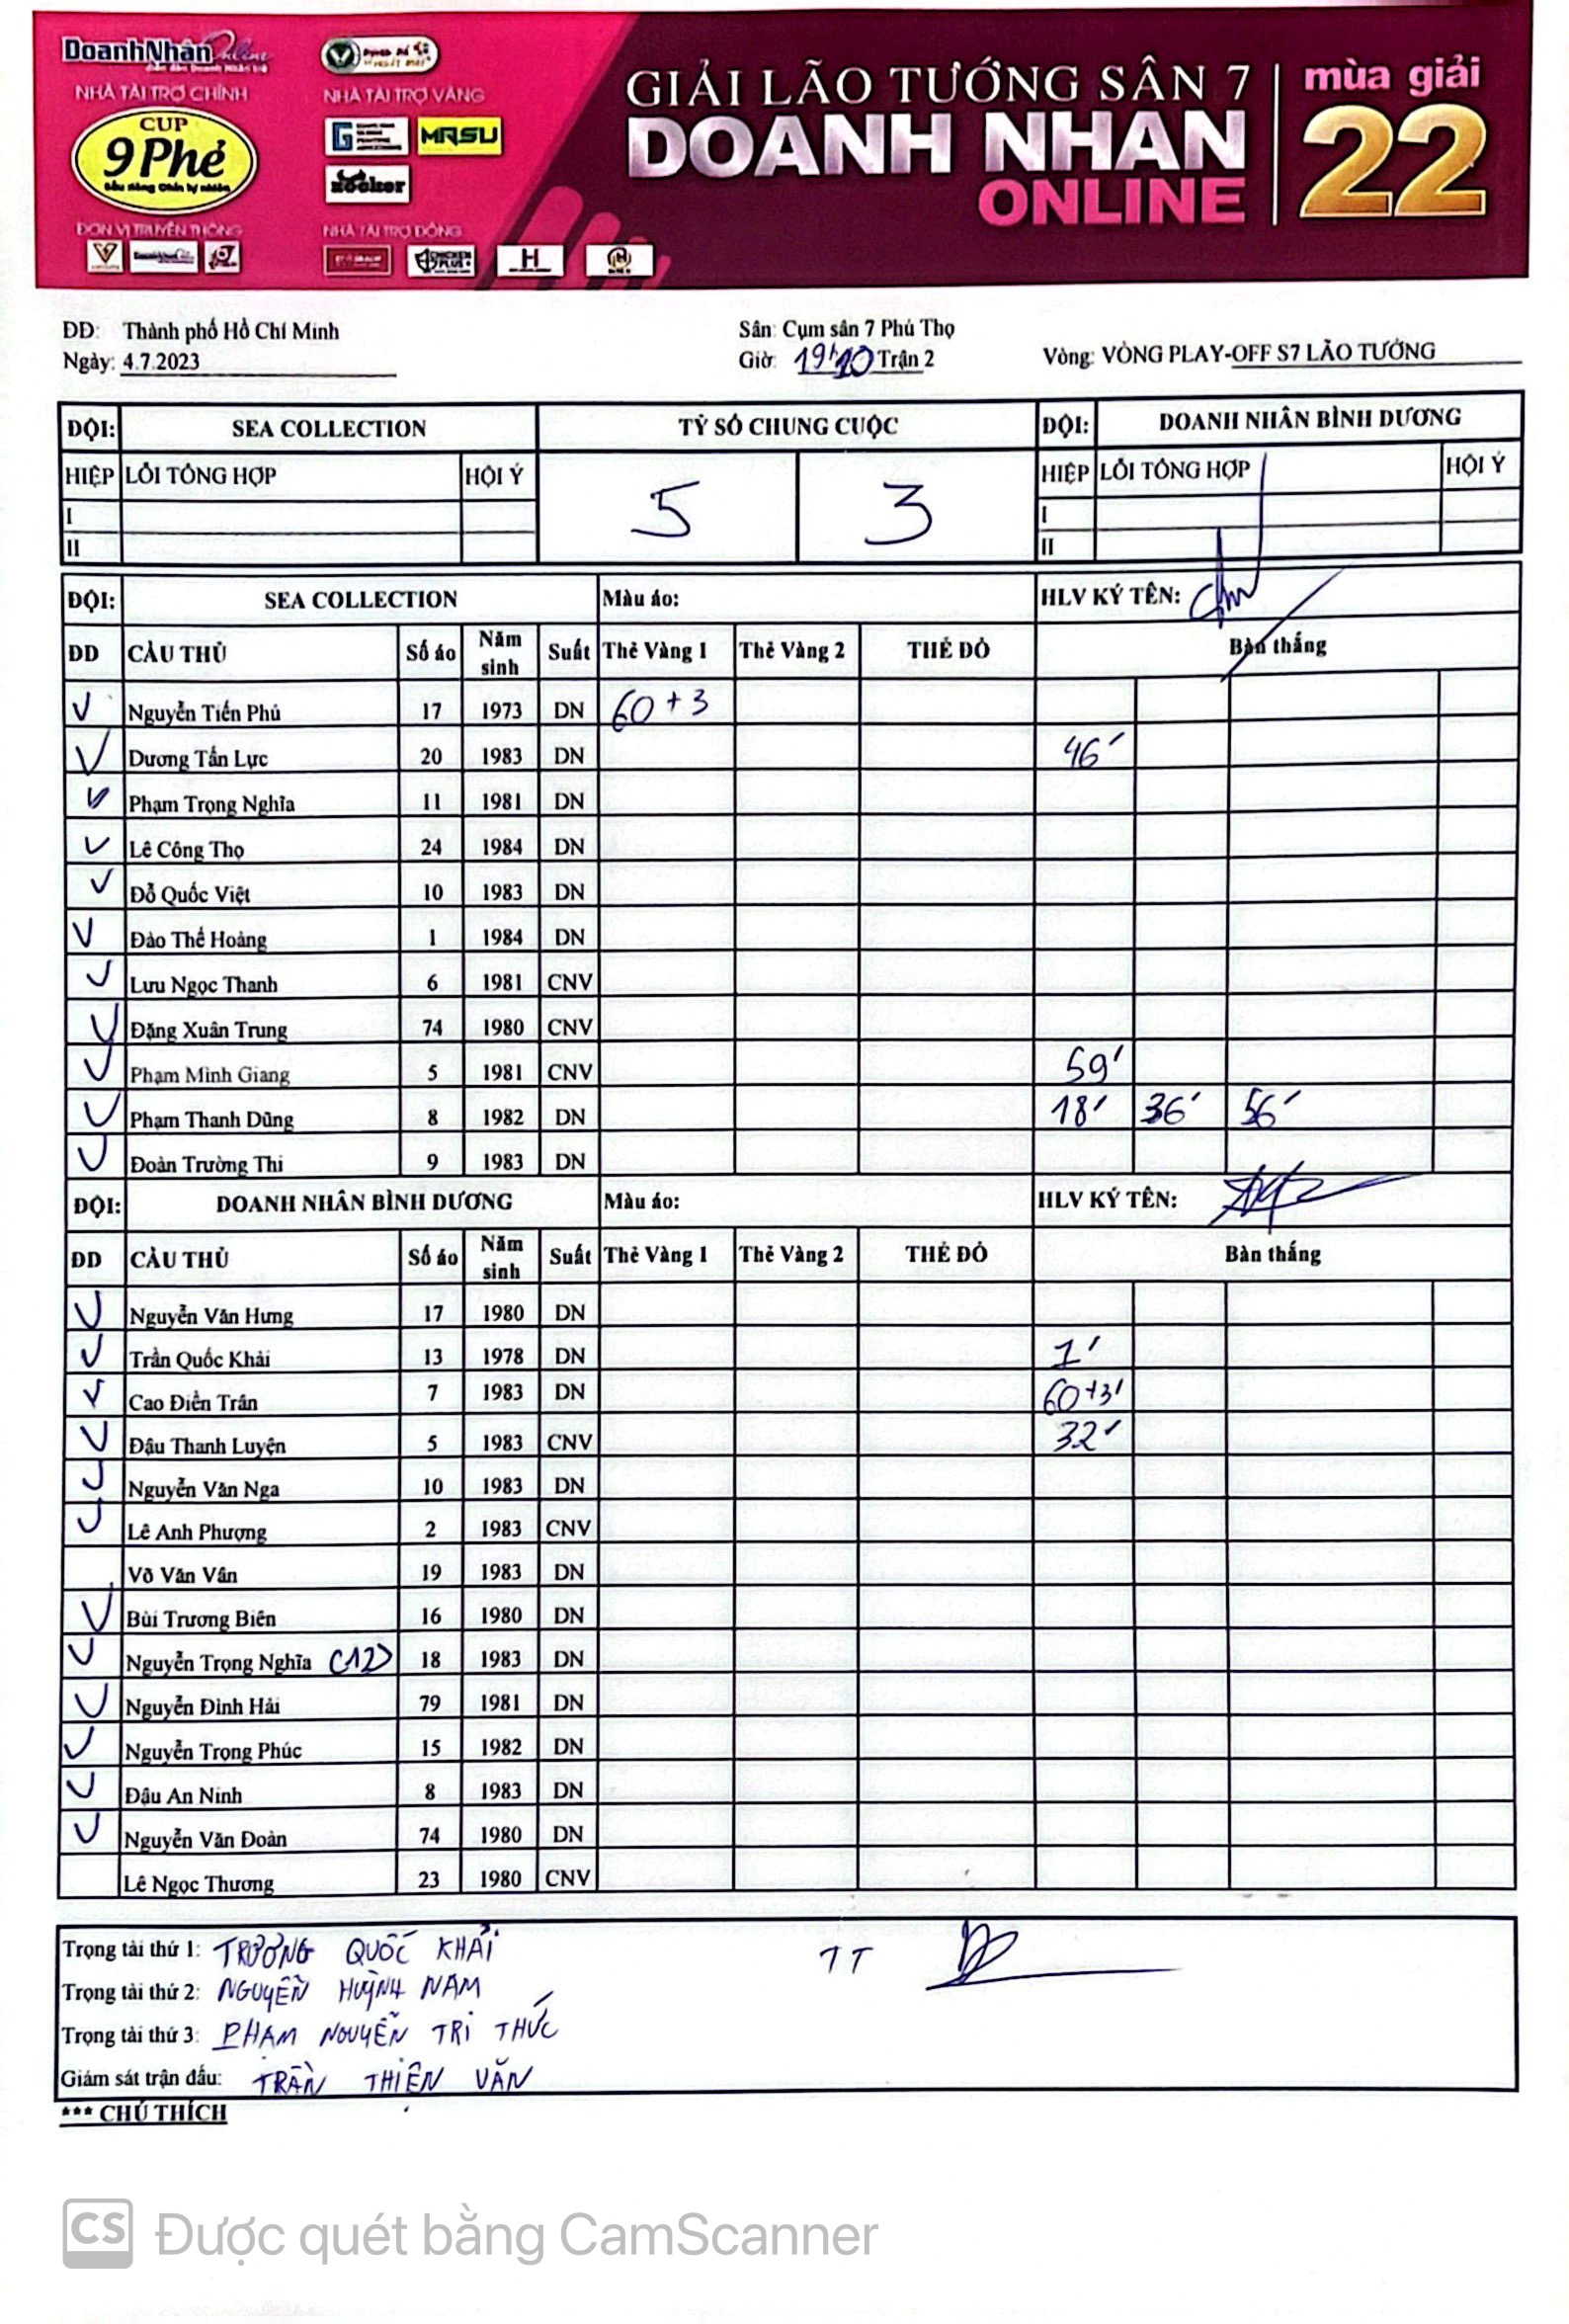 DoanhNhân Online
NHÀ TÀI TRỢ CHÍNH
NHÀ TÀI TRỢ VÀNG
CUP
9 Phẻ
MRSU
Zocker
ĐƠN VỊ TRUYỀN THÔNG
NHÀ TÀI TRỢ ĐỒNG
CHICKEN PLUS
H
GIẢI LÃO TƯỚNG SÂN 7
DOANH NHÂN
ONLINE
mùa giải
22
ĐĐ: Thành phố Hồ Chí Minh
Sân: Cụm sân 7 Phú Thọ
Ngày: 4.7.2023
Giờ: 19h10 Trận 2
Vòng: VÒNG PLAY-OFF S7 LÃO TƯỚNG
ĐỘI: SEA COLLECTION TỶ SỐ CHUNG CUỘC ĐỘI: DOANH NHÂN BÌNH DƯƠNG
HIỆP LỖI TỔNG HỢP HỘI Ý 5 3 HIỆP LỖI TỔNG HỢP HỘI Ý
I I
II II
ĐỘI: SEA COLLECTION Màu áo: HLV KÝ TÊN:
ĐD CẦU THỦ Số áo Năm sinh Suất Thẻ Vàng 1 Thẻ Vàng 2 THẺ ĐỎ Bàn thắng
Nguyễn Tiến Phú 17 1973 DN 60 + 3
Dương Tấn Lực 20 1983 DN 46'
Phạm Trọng Nghĩa 11 1981 DN
Lê Công Thọ 24 1984 DN
Đỗ Quốc Việt 10 1983 DN
Đào Thế Hoàng 1 1984 DN
Lưu Ngọc Thanh 6 1981 CNV
Đặng Xuân Trung 74 1980 CNV
Phạm Minh Giang 5 1981 CNV 59'
Phạm Thanh Dũng 8 1982 DN 18' 36' 56'
Đoàn Trường Thi 9 1983 DN
ĐỘI: DOANH NHÂN BÌNH DƯƠNG Màu áo: HLV KÝ TÊN:
ĐD CẦU THỦ Số áo Năm sinh Suất Thẻ Vàng 1 Thẻ Vàng 2 THẺ ĐỎ Bàn thắng
Nguyễn Văn Hưng 17 1980 DN
Trần Quốc Khải 13 1978 DN 1'
Cao Điền Trân 7 1983 DN 60+3'
Đậu Thanh Luyện 5 1983 CNV 32'
Nguyễn Văn Nga 10 1983 DN
Lê Anh Phượng 2 1983 CNV
Võ Văn Vân 19 1983 DN
Bùi Trương Biên 16 1980 DN
Nguyễn Trọng Nghĩa (12) 18 1983 DN
Nguyễn Đình Hải 79 1981 DN
Nguyễn Trọng Phúc 15 1982 DN
Đậu An Ninh 8 1983 DN
Nguyễn Văn Đoàn 74 1980 DN
Lê Ngọc Thương 23 1980 CNV
Trọng tài thứ 1: TRƯƠNG QUỐC KHẢI TT
Trọng tài thứ 2: NGUYỄN HUỲNH NAM
Trọng tài thứ 3: PHẠM NGUYỄN TRI THỨC
Giám sát trận đấu: TRẦN THIỆN VĂN
*** CHÚ THÍCH
CS Được quét bằng CamScanner